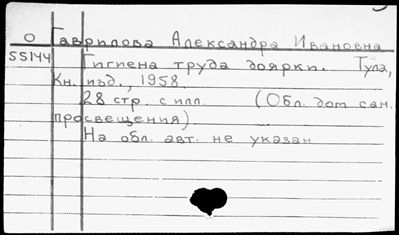 О Гаврилова Александра Ивановна
55144 Гигиена труда доярки. Тула,
Кн. изд., 1958.
28 стр. с илл. (Обл. дом сан.
просвещения)
На обл. авт. не указан